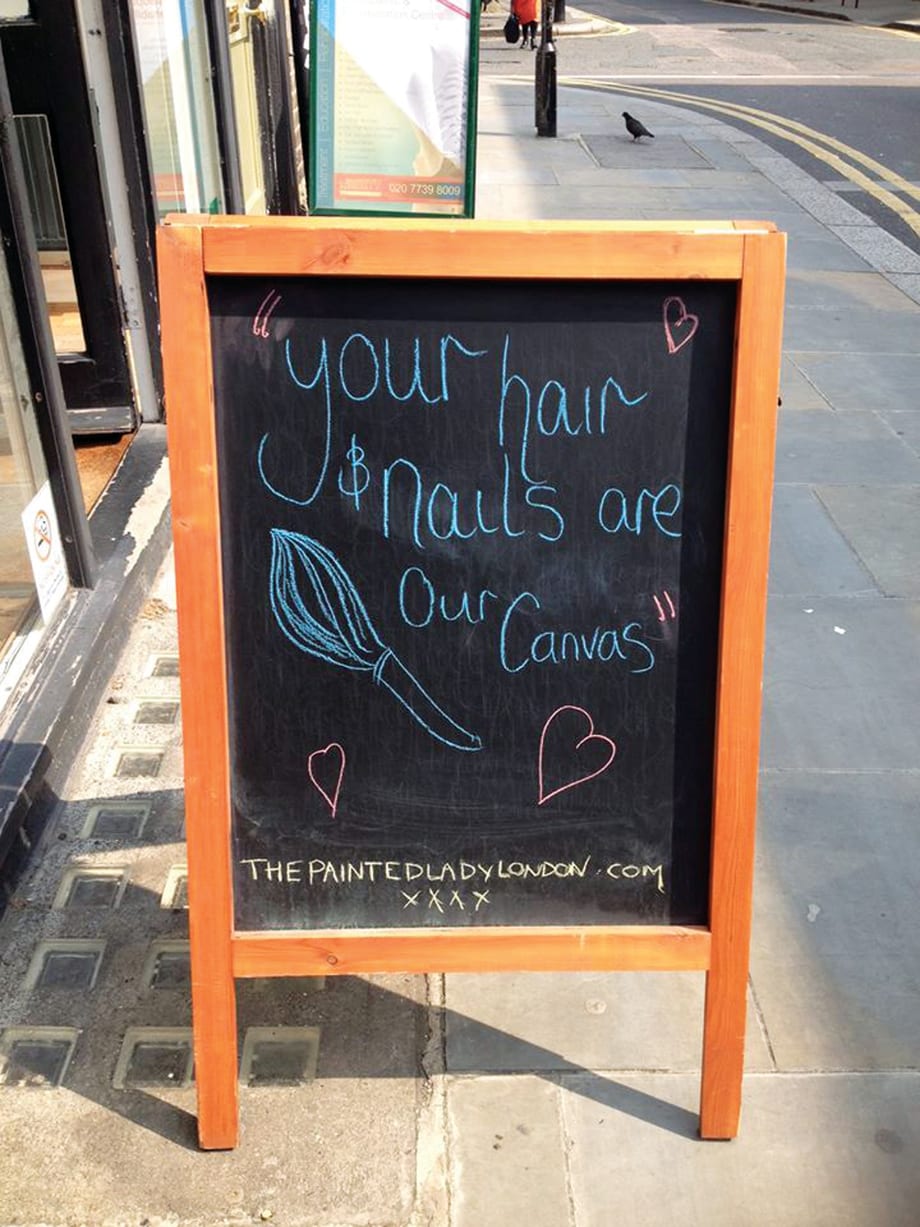 020 7739 8009
"your hair
& nails are
Our Canvas"
THEPAINTEDLADYLONDON.COM
xxxx